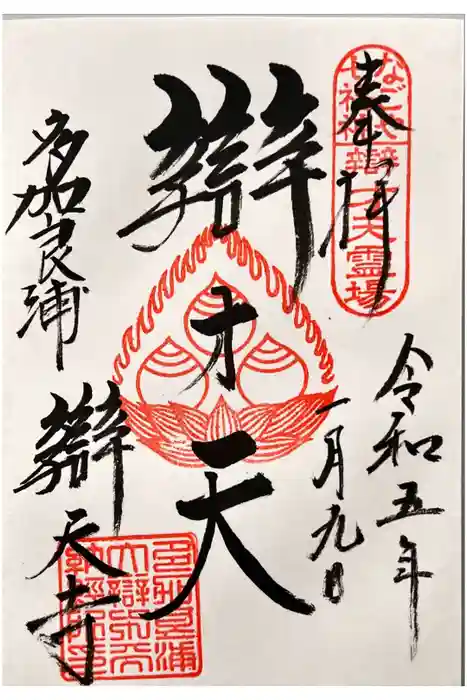 奉拝
なごや七福神
辯才天霊場
令和五年
一月九日
辯才天
多加良浦
辯天寺